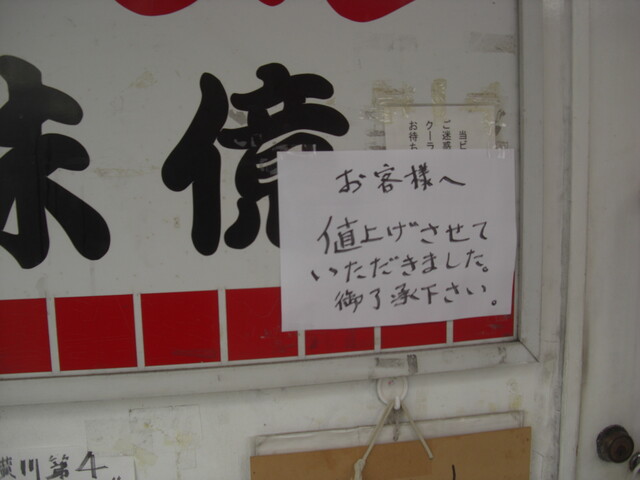 お客様へ
値上げさせて
いただきました。
御了承下さい。
当ビ
ご迷惑
クーラ
お待ち
味
横川第4